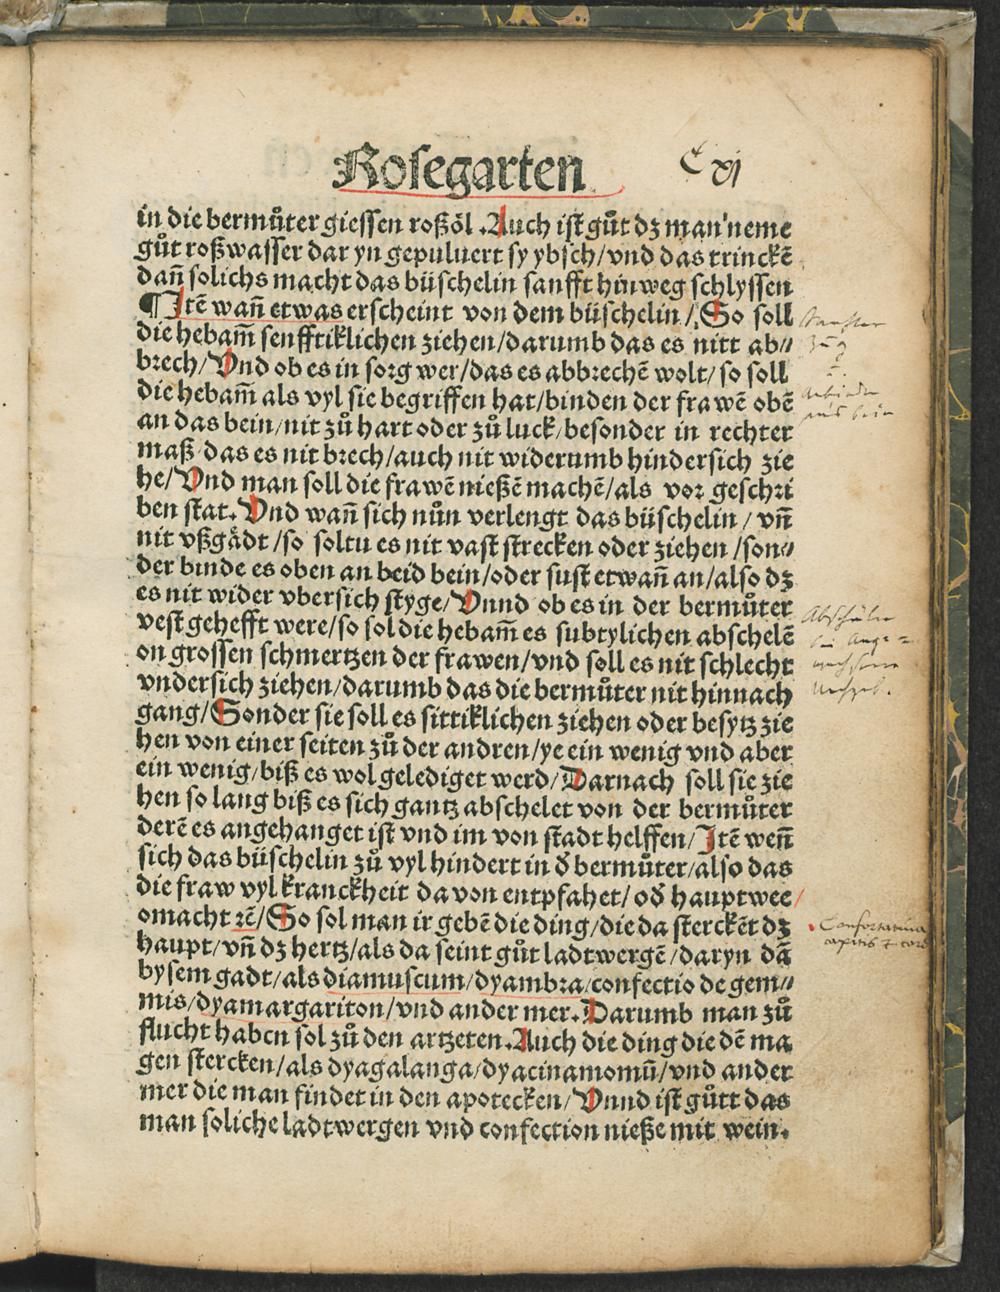 Rosegarten Cxj
in die bermůter giessen roßöl .Auch ist gůt dz man neme
gůt roßwasser dar yn gepuluert sy ybsch/vnd das trinckē
dañ solichs macht das büschelin sanfft hinweg schlyssen
¶Itē wañ etwas erscheint von dem büschelin/So soll
die hebam̄ senfftiklichen ziehen/darumb das es nitt ab//
brech/Vnd ob es in sorg wer/das es abbrechē wolt/so soll
die hebam̄ als vyl sie begriffen hat/binden der frawē obē
an das bein/nit zů hart oder zů luck/besonder in rechter
maß das es nit brech/auch nit widerumb hindersich zie
he/Vnd man soll die frawē nießē machē/als vor geschri
ben stat.Vnd wañ sich nůn verlengt das büschelin/vñ
nit vßgådt/so soltu es nit vast strecken oder ziehen/son//
der binde es oben an beid bein/oder sust etwañ an/also dz
es nit wider vbersich styge/Vnnd ob es in der bermůter
vest gehefft were/so sol die hebam̄ es subtylichen abschelē
on grossen schmertzen der frawen/vnd soll es nit schlecht
vndersich ziehen/darumb das die bermůter nit hinnach
gang/Sonder sie soll es sittiklichen ziehen oder besytz zie
hen von einer seiten zů der andren/ye ein wenig vnd aber
ein wenig/biß es wol gelediget werd/Darnach soll sie zie
hen so lang biß es sich gantz abschelet von der bermůter
derē es angehanget ist vnd im von stadt helffen/Itē weñ
sich das büschelin zů vyl hindert in đ bermůter/also das
die fraw vyl kranckheit da von entpfahet/ođ hauptwee/
omacht ꝛē/So sol man ir gebē die ding/die da sterckēt dz
haupt/vñ dz hertz/als da seint gůt ladtwergē/daryn dā
bysem gadt/als diamuscum/dyambra/confectio de gem//
mis/dyamargariton/vnd ander mer.Darumb man zů
flucht haben sol zů den artzeten.Auch die ding die dē ma
gen stercken/als dyagalanga/dyacinamomū/vnd ander
mer die man findet in den apotecken/Vnnd ist gůtt das
man soliche ladtwergen vnd confection nieße mit wein.
Confortantia
capitis